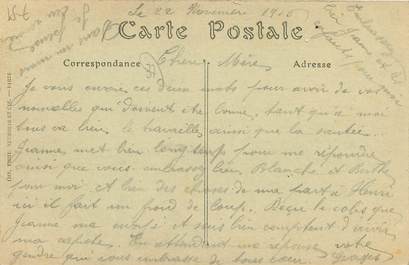 Le 22 Novembre 1916
Carte Postale
Correspondance
Adresse
Chère Mère
Je vous envoie ces deux mots pour avoir de vos
nouvelles qui doivent etre bonne, tant qu'a moi
tous va bien le travaille ainsi que la santée.
Jeanne met bien longtemps pour me répondre
ainsi que vous. embrassez bien Blanche et Berthe
pour moi et bien des choses de ma part a Henri
ici il fait un froid de loup. Reçu le colis que
Jeanne ma envoyé et suis bien comptent d'avoir
ma capote. En attendant une réponse votre
gendre qui vous embrasse de tous cœur.